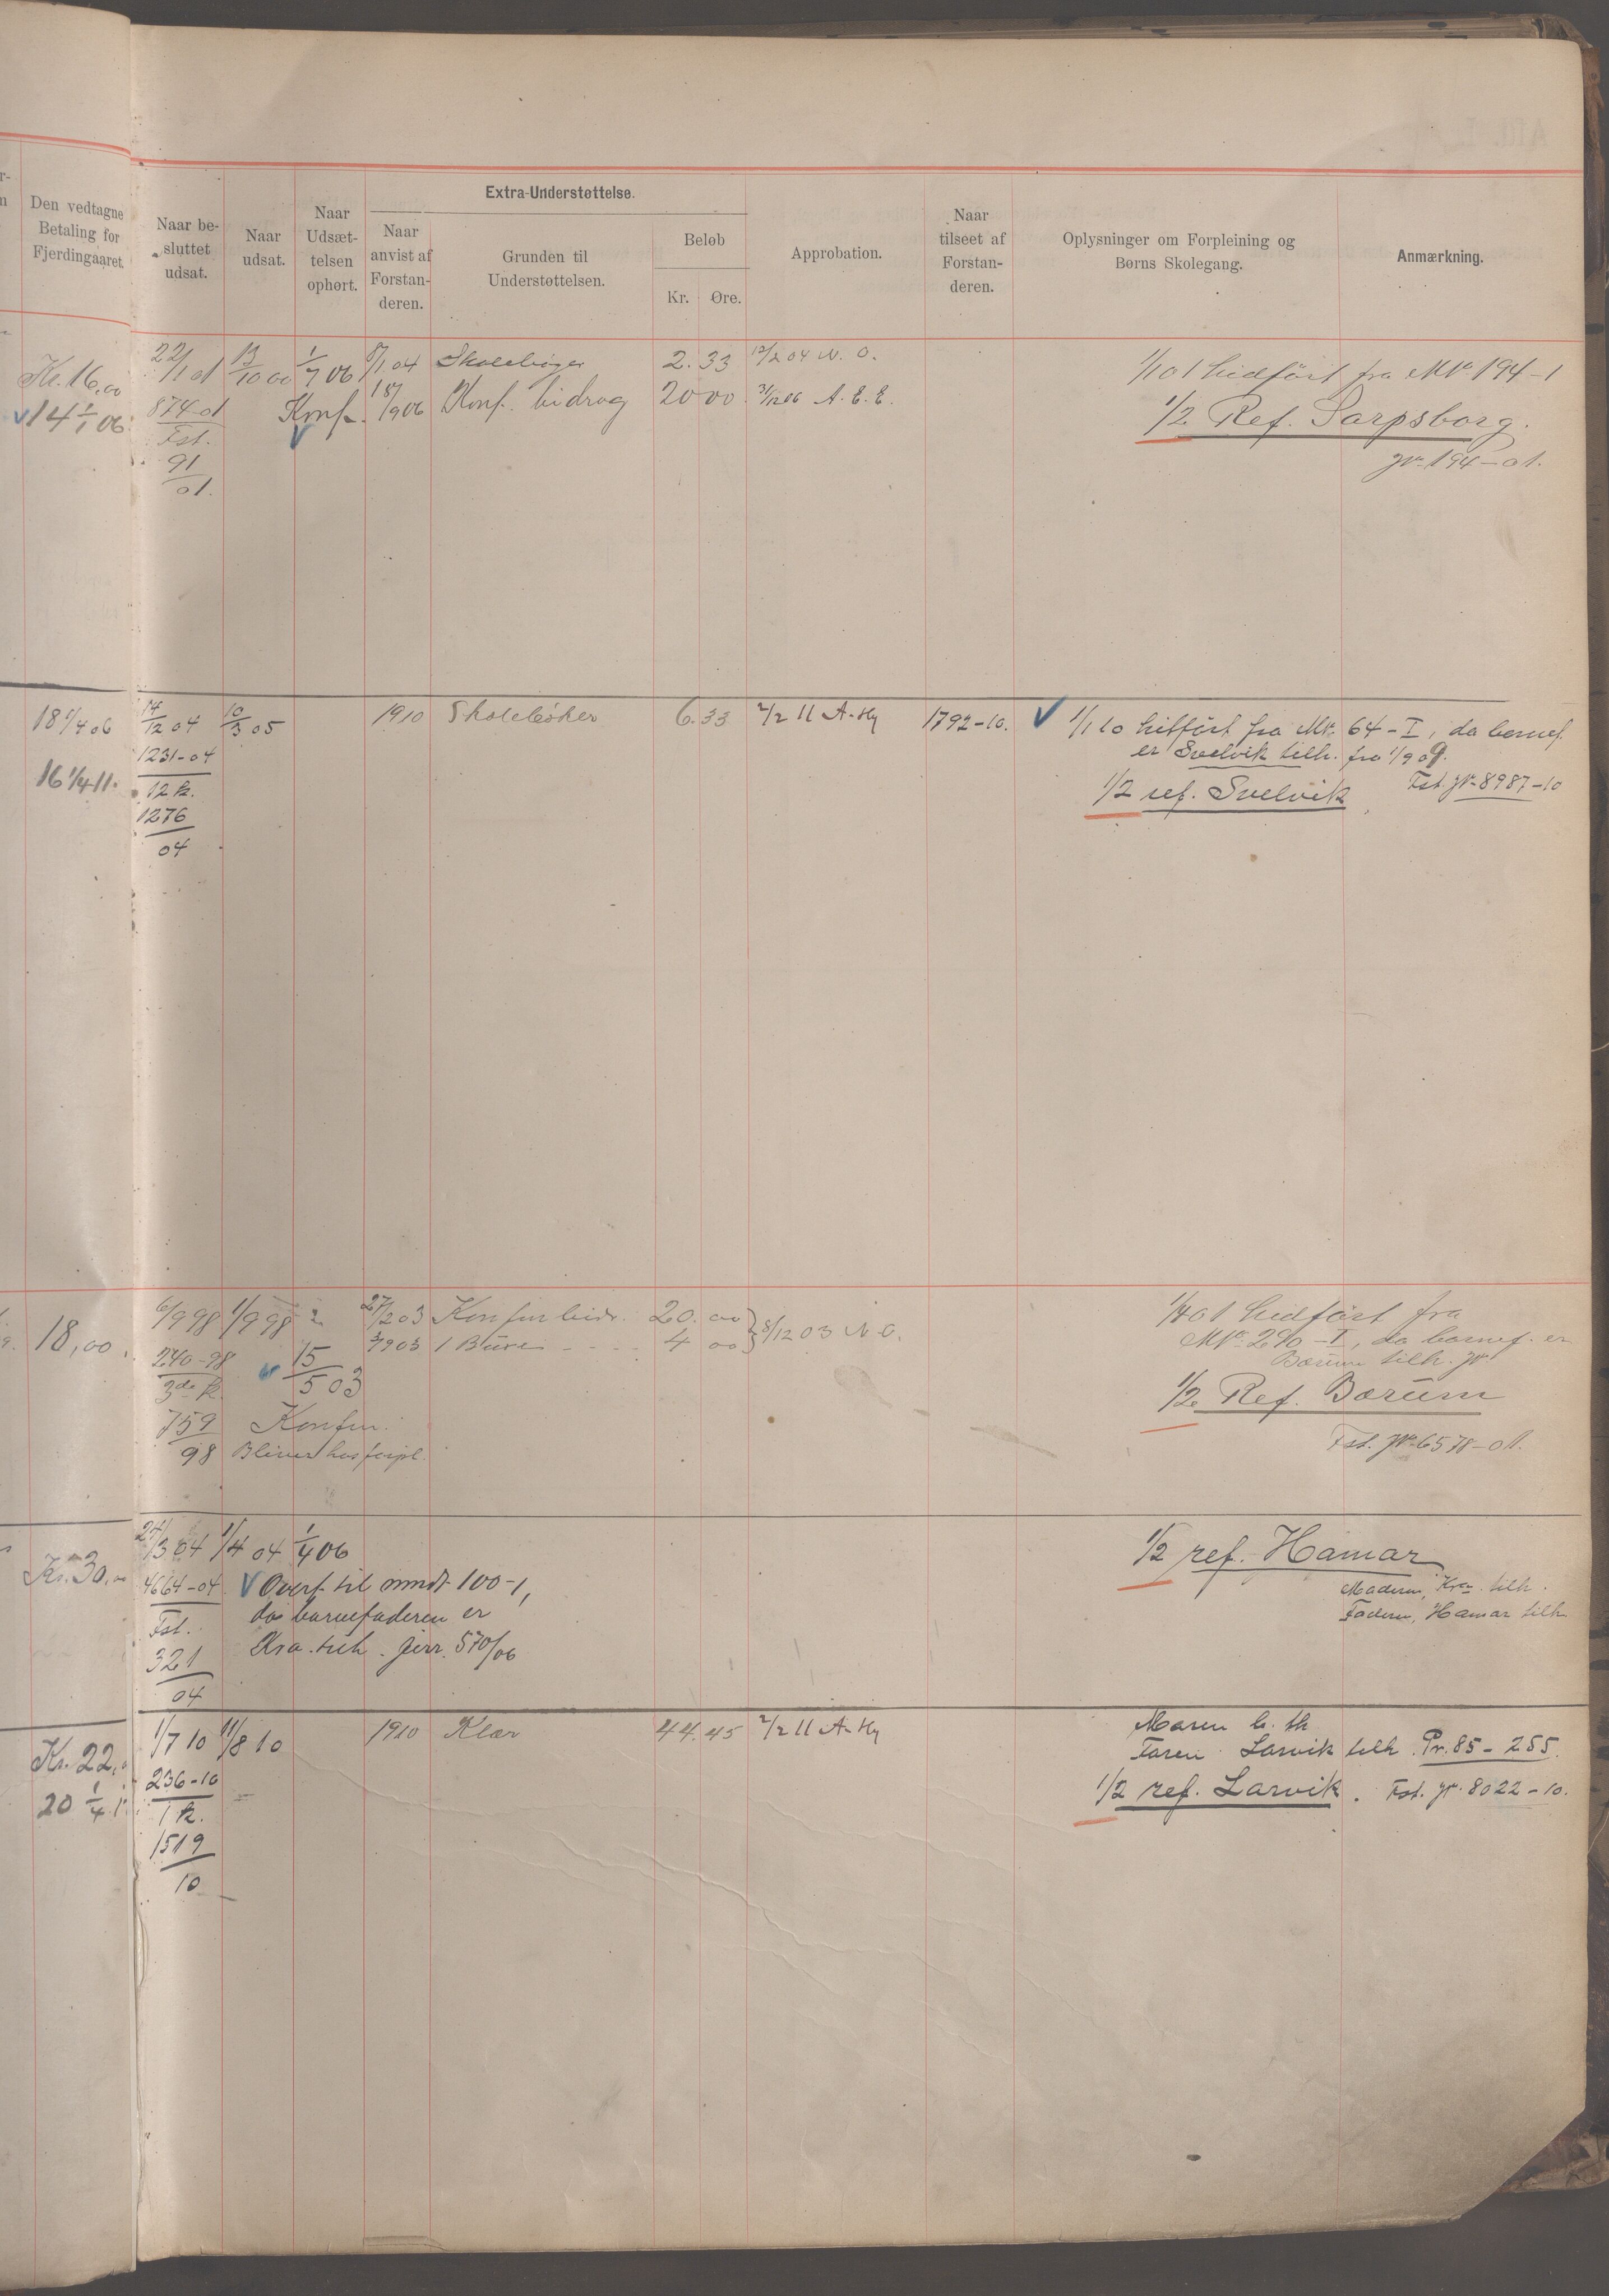 Den vedtagne
Betaling for
Fjerdingaaret.
Naar be-
sluttet
udsat.
Naar
udsat.
Naar
Udsæt-
telsen
ophørt.
Extra-Understøttelse.
Naar
anvist af
Forstan-
deren.
Grunden til
Understøttelsen.
Beløb
Kr. Øre.
Approbation.
Naar
tilseet af
Forstan-
deren.
Oplysninger om Forpleining og
Børns Skolegang.
Anmærkning.
Kr. 16,00 22/1 01 13/10 00 1/7 06 8/1 04 Skolebøger 2.33 12/2 04 N. O. 1/1 01 hidført fra Mt. 194-1
14 1/1 06 874-01 Konf. 18/9 06 Konf. bidrag 20 00 31/12 06 A. E. E. 1/2 Ref. Sarpsborg.
Fst. jr. 194-01.
91
01.
18 1/4 06 14/12 04 10/3 05 1910 Skolebøker 6.33 2/2 11 A-Hy 1792-10. 1/1 10 hitført fra Mt. 64-I, da barnef.
1231-04 er Svelvik tilh. fra 1/9 09.
16 1/4 11. 12 k. 1/2 ref. Svelvik Fst. jr. 8987-10
1276
04
18,00 6/9 98 1/9 98 27/2 03 Konfm bidr. 20.00 8/12 03 N. O. 1/4 01 hidført fra
3/9 03 1 Buxe 4 00 Mt. 290-I, da barnef. er
240-98 15/5 03 Bærum tilh. jr.
3die k. 1/2 Ref. Bærum
759 Konfm.
98 Bliver hos forpl. Fst. jr. 6578-01.
Kr. 30,00 24/3 04 1/4 04 1/4 06 1/2 ref. Hamar
4664-04 Overf. til mndt 100-1, Moderen, Kra. tilh.
Fst. da barnefaderen er Faderen, Hamar tilh
321 Kra. tilh. jurr. 570/06
04
Kr. 22, 1/7 10 11/8 10 1910 Klær 44.45 2/2 11 A-Hy Maren h. th
236-10 Faren Larvik tilh. Pr. 85-255.
20 1/4 1 k. 1/2 ref. Larvik. Fst. jr. 8022-10.
1519
10